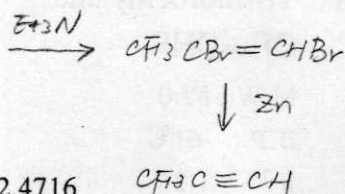 Et3N
CF3CBr=CHBr
Zn
2.4716
CF3C≡CH